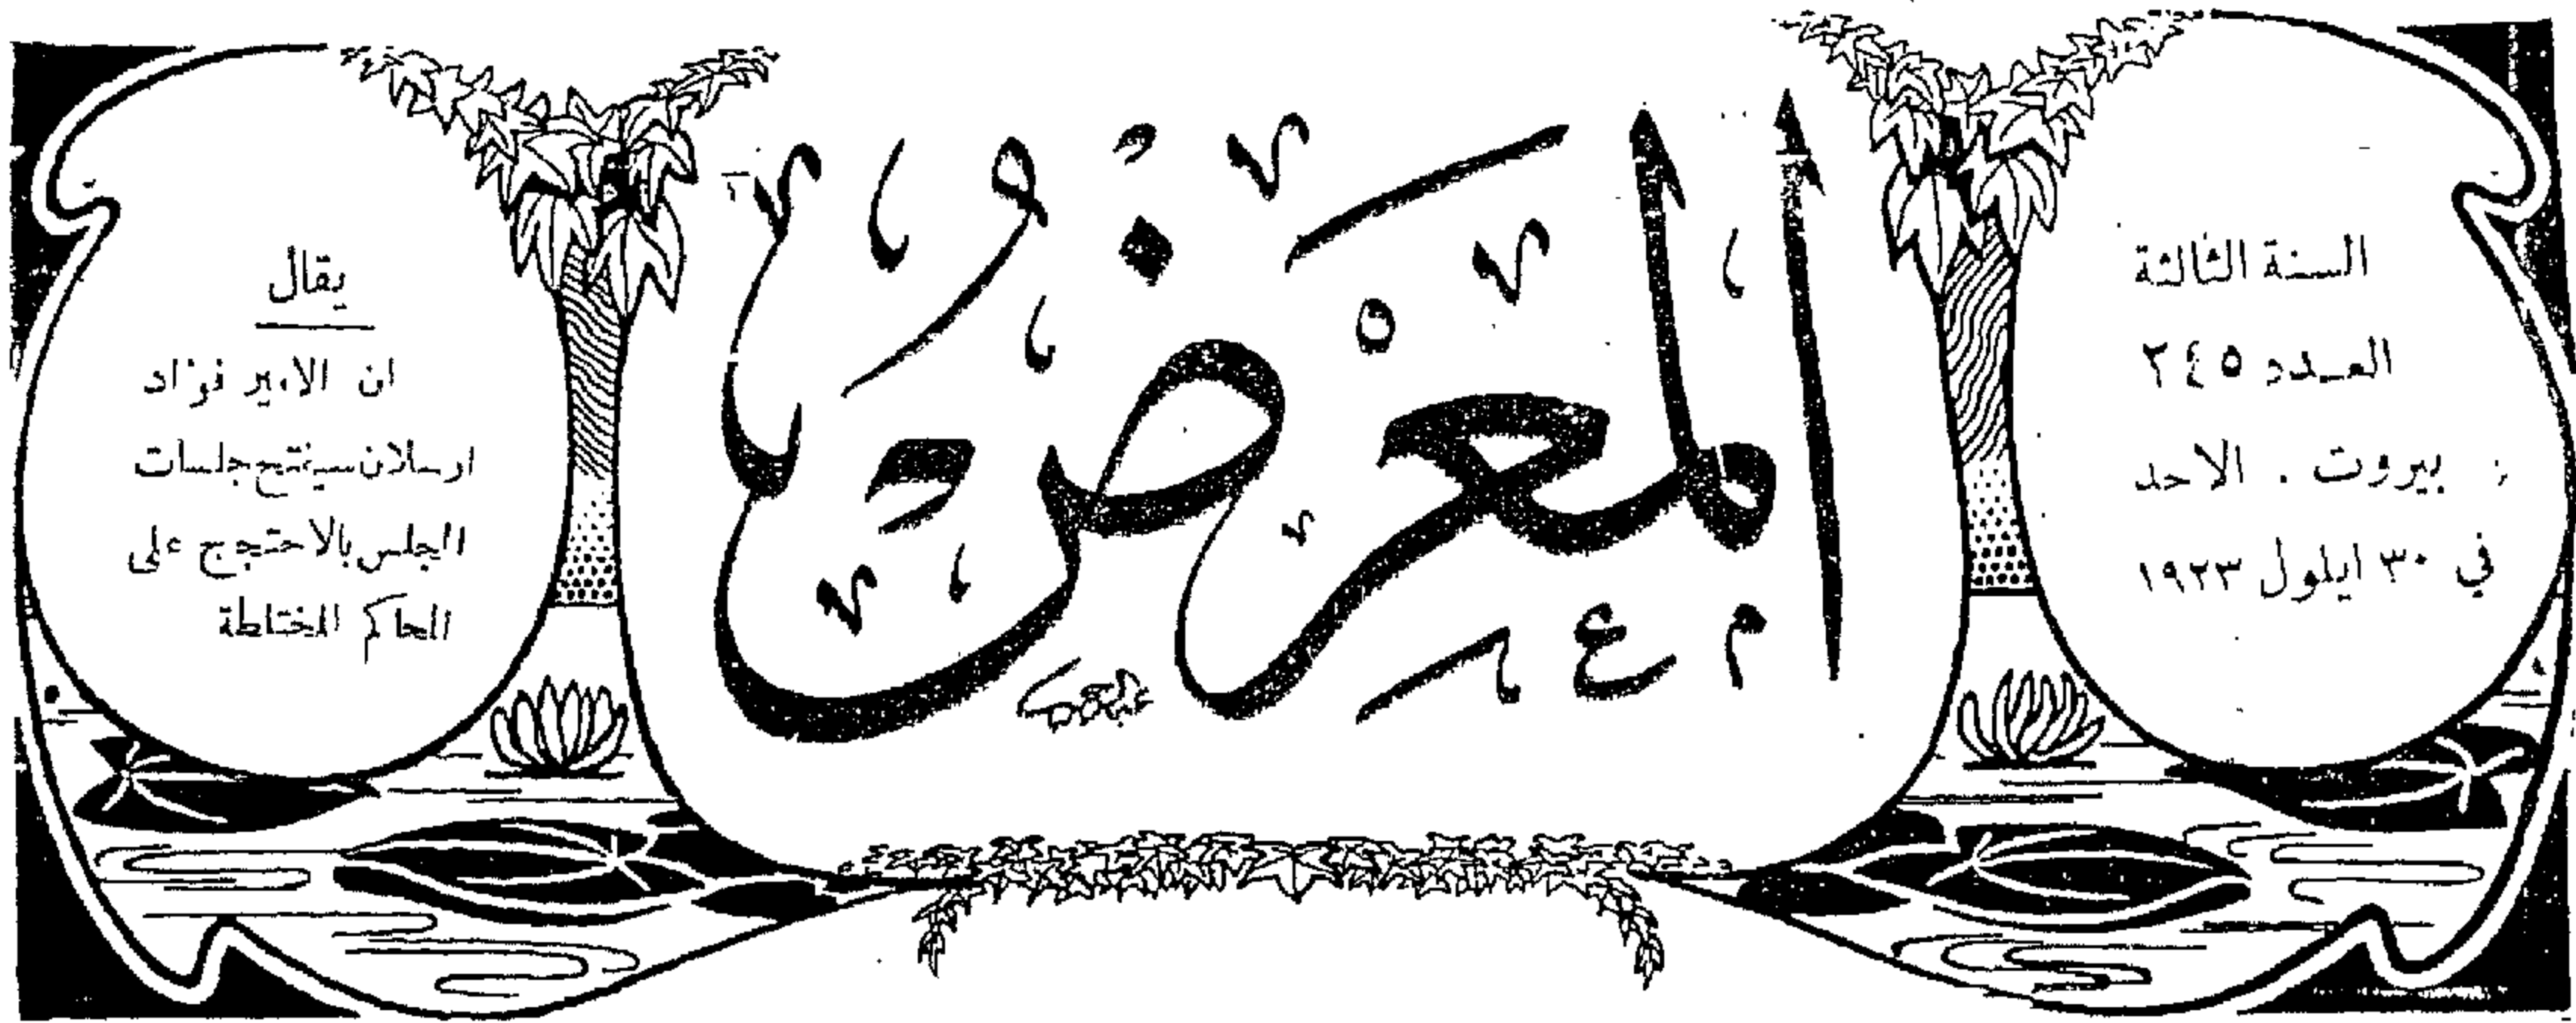 السنة الثالثة
العدد ٢٤٥
بيروت . الاحد
في ٣٠ ايلول ١٩٢٣
المعرض
يقال
ان الامير فؤاد
ارسلان سيفتتح جلسات
المجلس بالاحتجج على
المحاكم المختلطة